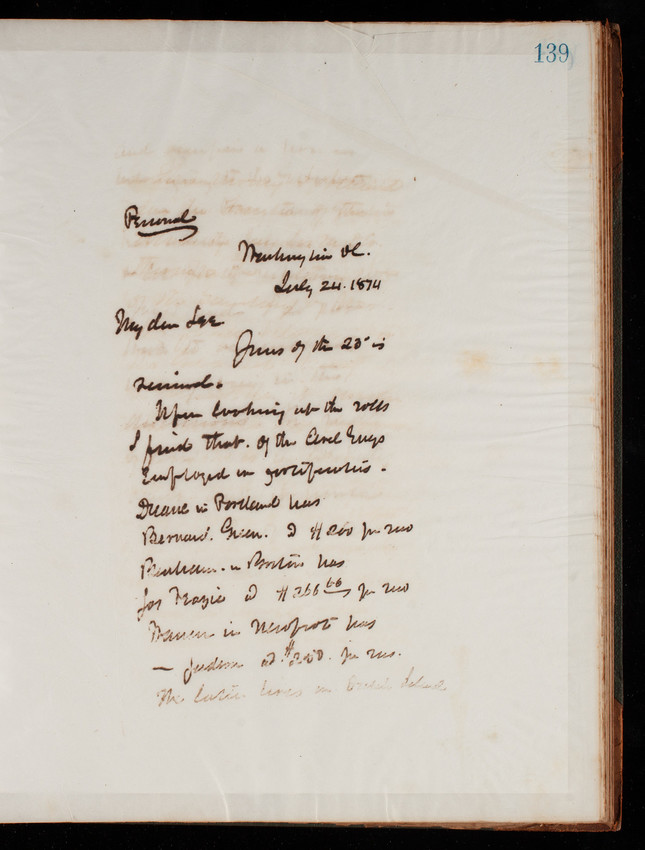 139
Personal
Washington DC.
July 24. 1874
My dear
Yours of the 23rd is
received.
Upon looking up the rolls
I find that of the Civil Engrs
Employed on fortifications -
Duane in Portland has
Bernard. Green. @ $200 per mo
Benham in Boston has
Jos Frazie @ $266 66 per mo
Warren in Newport has
— Judson @ $200. per mo.
The latter lives on Island